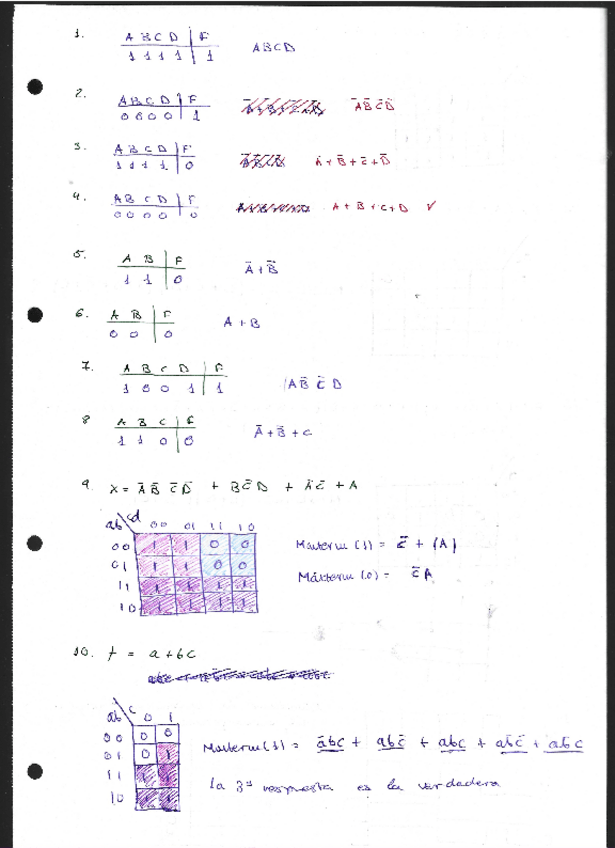 1. A B C D | F
1 1 1 1 | 1 ABCD
2. A B C D | F
0 0 0 0 | 1 A̅ B̅ C̅ D̅
3. A B C D | F
1 1 1 1 | 0 A̅ + B̅ + C̅ + D̅
4. A B C D | F
0 0 0 0 | 0 A + B + C + D ✓
5. A B | F
1 1 | 0 A̅ + B̅
6. A B | F
0 0 | 0 A + B
7. A B C D | F
1 0 0 1 | 1 A B̅ C̅ D
8 A B C | F
1 1 0 | 0 A̅ + B̅ + C
9. X = A̅ B̅ C̅ D̅ + B C̅ D + A̅ C̅ + A
ab \ cd
00 01 11 10
00 1 1 0 0
01 1 1 0 0
11 1 1 1 1
10 1 1 1 1
Maxterm (1) = C̅ + (A)
Máxterm (0) = C̅ A
10. f = a + bc
ab \ c 0 1
00 0 0
01 0 1
11 1 1
10 1 1
Maxterm (1) = a̅bc + abc̅ + abc + ab̅c̅ + ab̅c
la 3ª respuesta es la verdadera